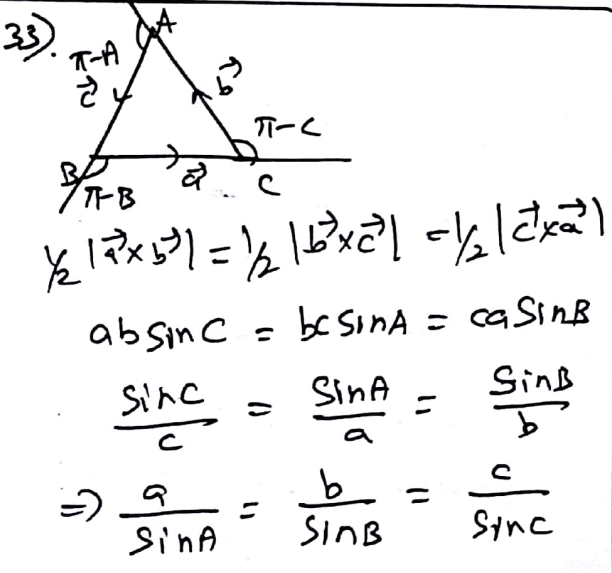 33).
A
π-A
c⃗
b⃗
π-C
B
a⃗
C
π-B
1/2 |a⃗×b⃗| = 1/2 |b⃗×c⃗| = 1/2 |c⃗×a⃗|
ab sinC = bc sinA = ca sinB
sinC/c = sinA/a = sinB/b
⇒ a/sinA = b/sinB = c/sinC